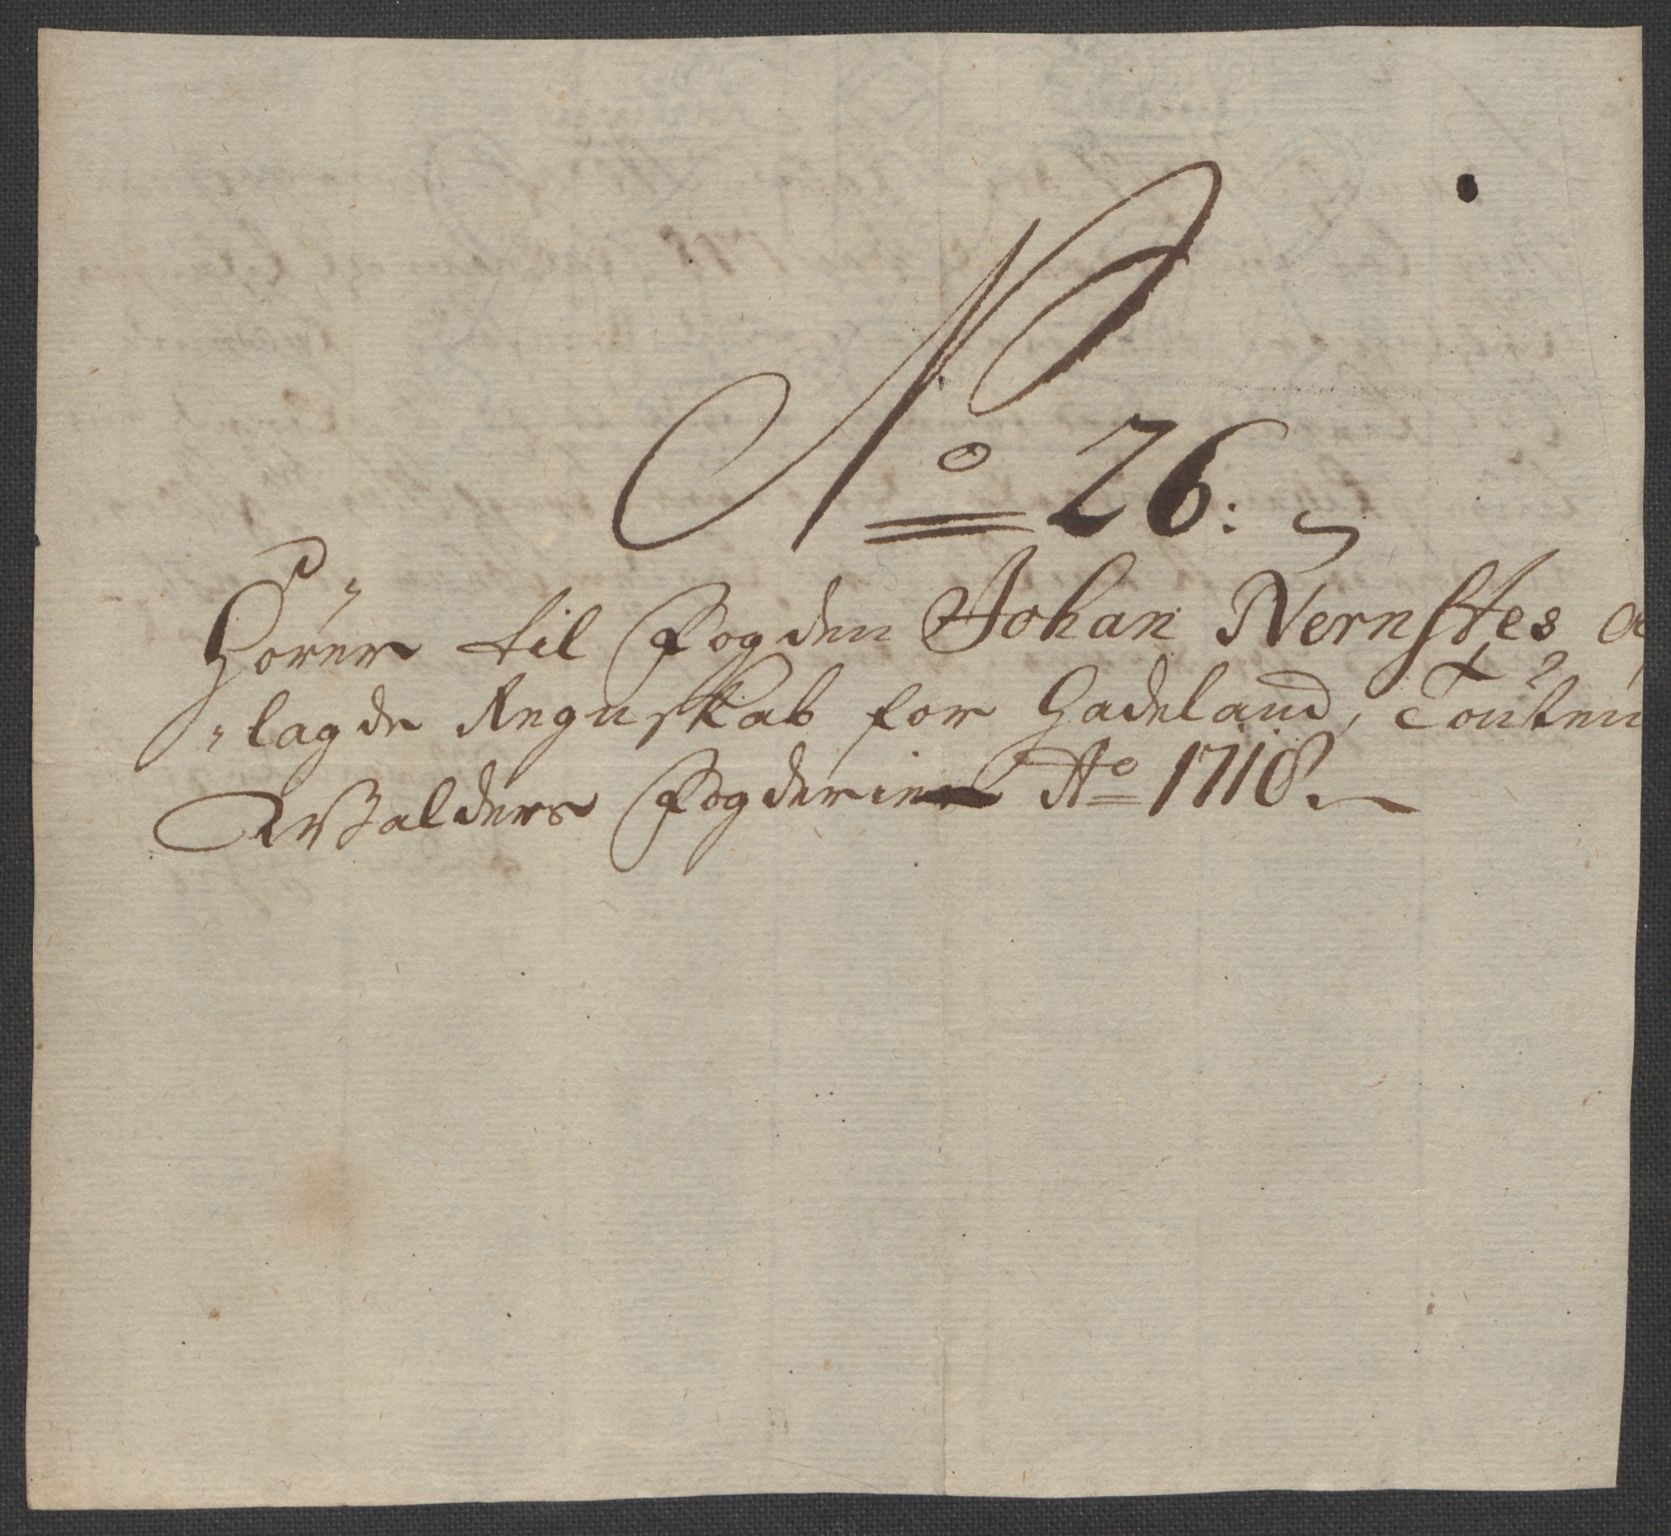 No 26:
Hörer til Fogden Johan Nernstes a
-lagde Regnskab for Hadeland, Touten
Walders Fogderier Ao 1718.